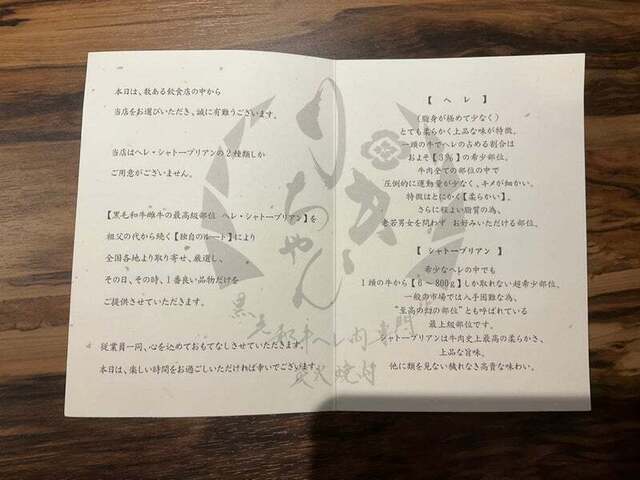 本日は、数ある飲食店の中から
当店をお選びいただき、誠に有難うございます。
当店はヘレ・シャトーブリアンの2種類しか
ご用意がございません。
【黒毛和牛雌牛の最高級部位 ヘレ・シャトーブリアン】を
祖父の代から続く【独自のルート】により
全国各地より取り寄せ、厳選し、
その日、その時、1番良い品物だけを
ご提供させていただきます。
従業員一同、心を込めておもてなしさせていただきます。
本日は、楽しい時間をお過ごしいただければ幸いでございます。
【 ヘ レ 】
（脂身が極めて少なく）
とても柔らかく上品な味が特徴。
一頭の牛でヘレの占める割合は
およそ【3％】の希少部位。
牛肉全ての部位の中で
圧倒的に運動量が少なく、キメが細かい。
特徴はとにかく【柔らかい】。
さらに程よい脂質の為、
老若男女を問わず お好みいただける部位。
【 シャトーブリアン 】
希少なヘレの中でも
1頭の牛から【6～800g】しか取れない超希少部位。
一般の市場では入手困難な為、
“至高の幻の部位”とも呼ばれている
最上級部位です。
シャトーブリアンは牛肉史上最高の柔らかさ、
上品な旨味。
他に類を見ない穢れなき高貴な味わい。
黒毛和牛ヘレ肉専門
炭火焼肉